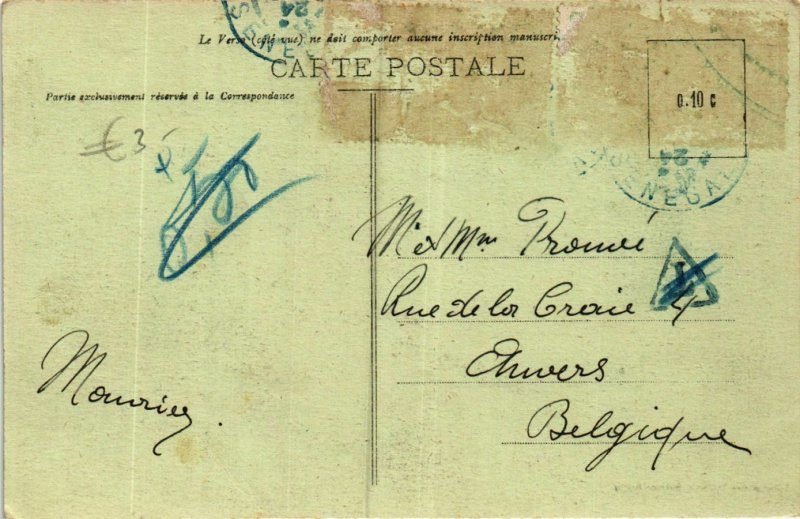 Le Verso (côté vue) ne doit comporter aucune inscription manuscri
CARTE POSTALE
Partie exclusivement réservée à la Correspondance
0.10 c
€ 3-
SENEGAL
24
SENEGAL
24
T
Mr et Mme
Rue de la
4
Anvers
Belgique